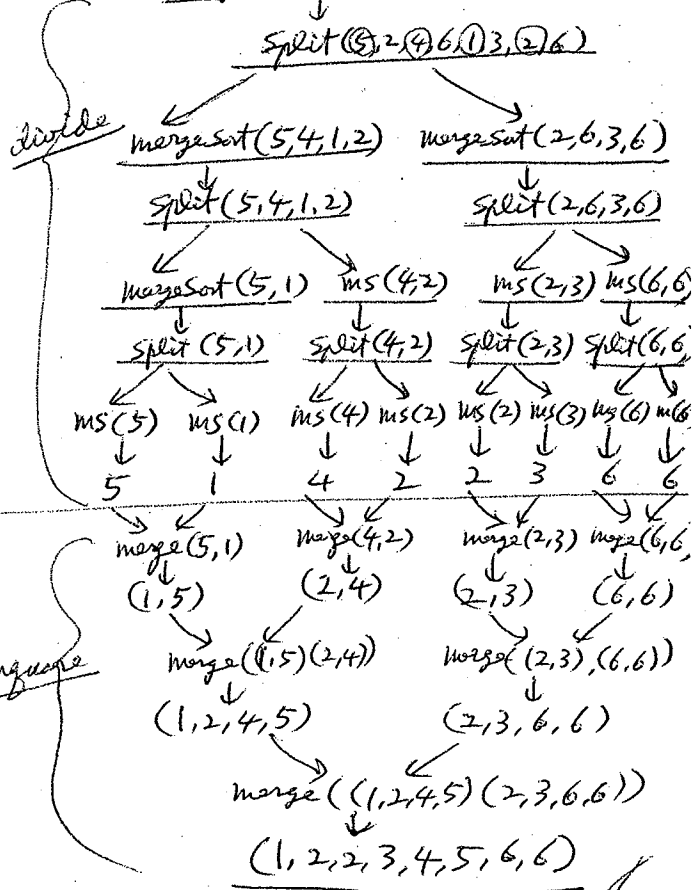 split(5,2,4,6,1,3,2,6)
divide
mergesort(5,4,1,2) mergesort(2,6,3,6)
split(5,4,1,2) split(2,6,3,6)
mergesort(5,1) ms(4,2) ms(2,3) ms(6,6)
split(5,1) split(4,2) split(2,3) split(6,6
ms(5) ms(1) ms(4) ms(2) ms(2) ms(3) ms(6) m(6
5 1 4 2 2 3 6 6
merge(5,1) merge(4,2) merge(2,3) merge(6,6
(1,5) (2,4) (2,3) (6,6)
merge((1,5)(2,4)) merge((2,3),(6,6))
(1,2,4,5) (2,3,6,6)
merge((1,2,4,5)(2,3,6,6))
(1,2,2,3,4,5,6,6)